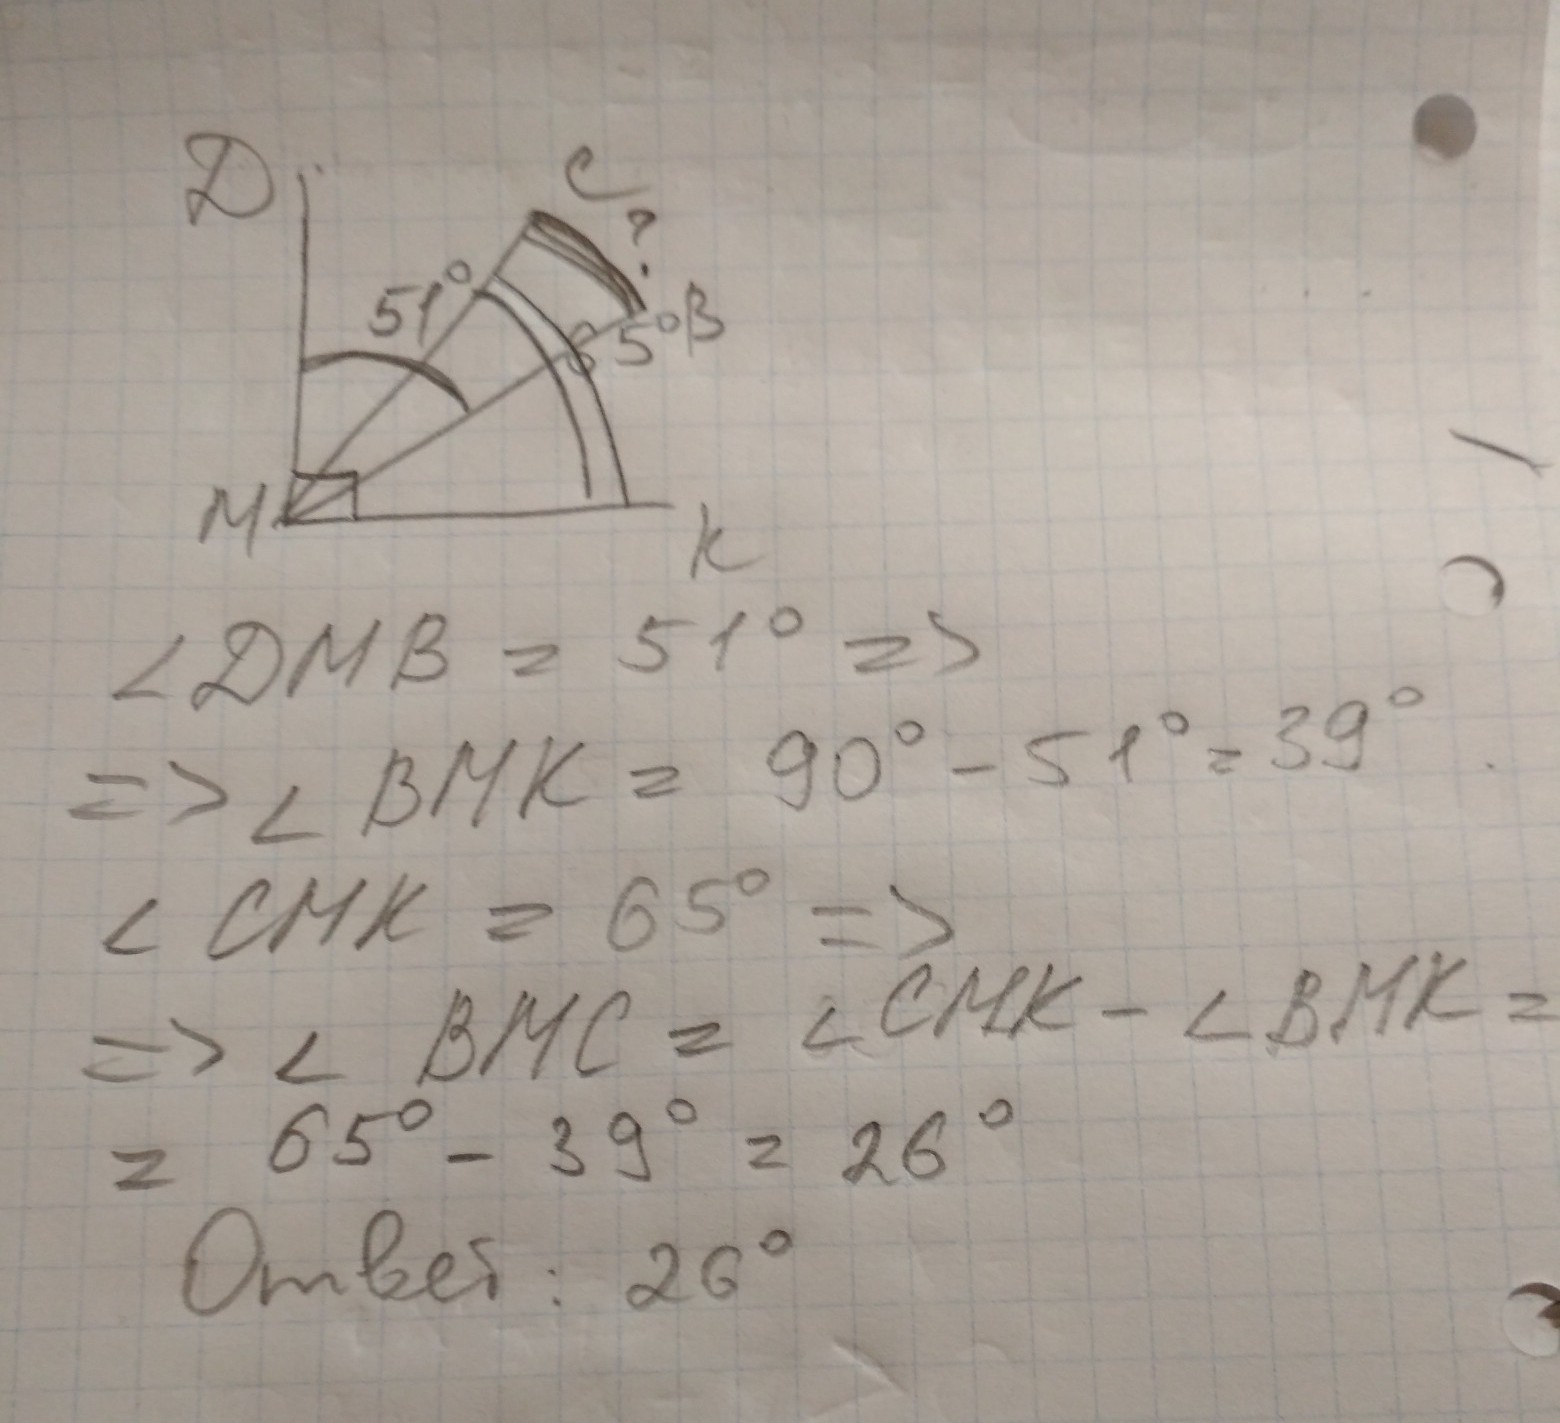 D
C
?
51°
65° B
M
K
∠DMB = 51° =>
=> ∠BMK = 90° - 51° = 39°.
∠CMK = 65° =>
=> ∠BMC = ∠CMK - ∠BMK =
= 65° - 39° = 26°
Ответ: 26°